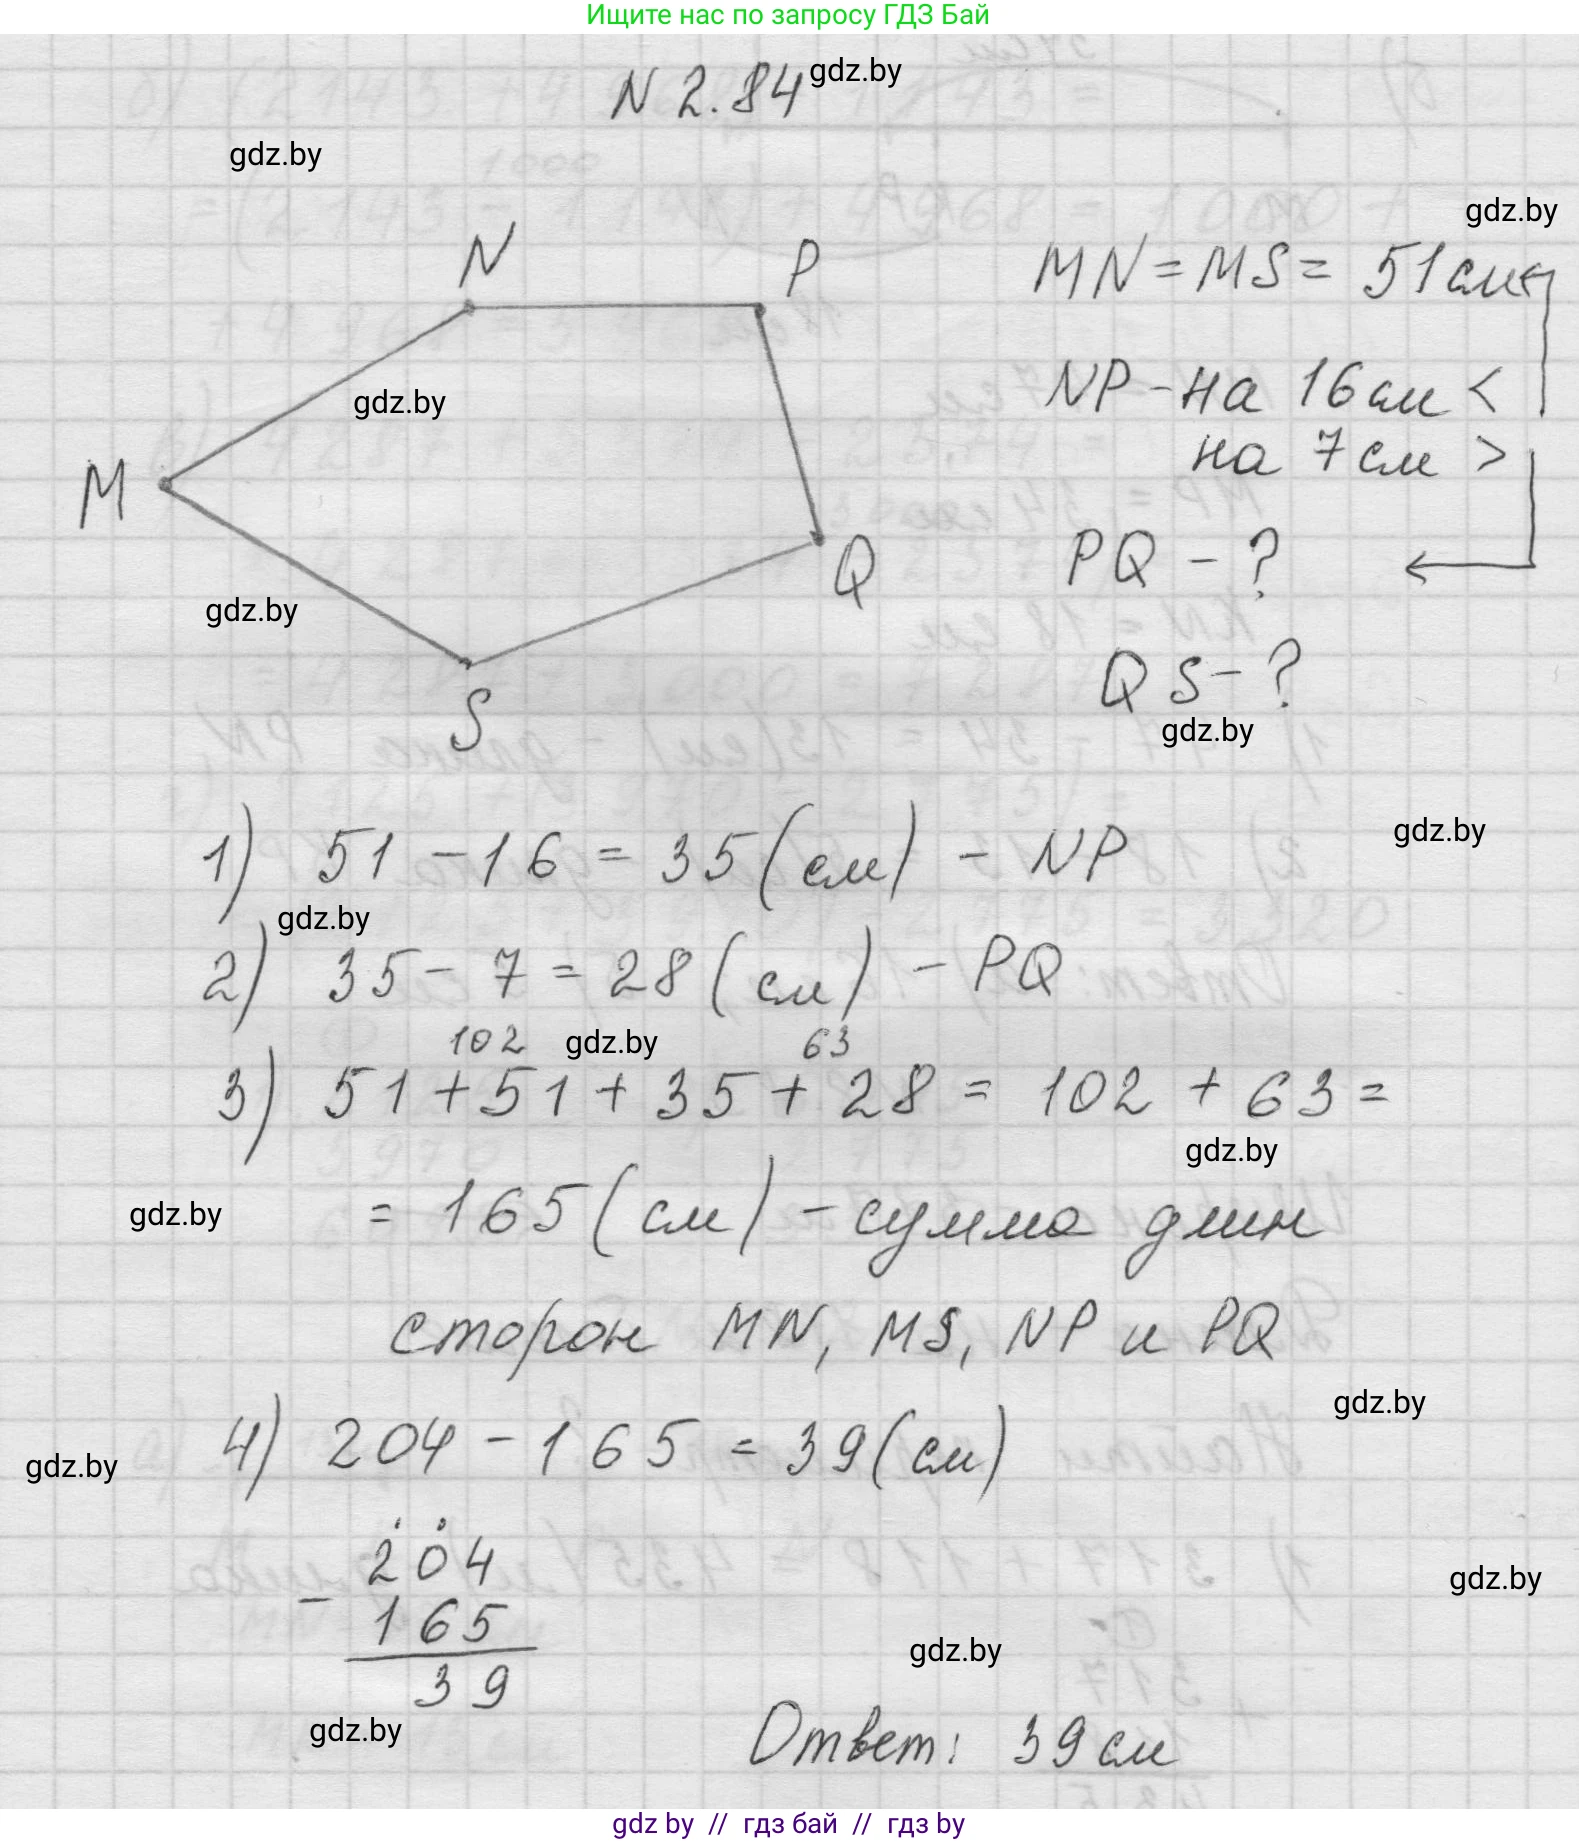 Ищите нас по запросу ГДЗ Бай
N 2.84
gdz.by
gdz.by
gdz.by
N
P
MN = MS = 51 см
NP - на 16 см <
gdz.by
на 7 см >
M
PQ - ?
Q
gdz.by
QS - ?
S
gdz.by
1) 51 - 16 = 35 (см) - NP
gdz.by
gdz.by
2) 35 - 7 = 28 (см) - PQ
102
gdz.by
63
3) 51 + 51 + 35 + 28 = 102 + 63 =
gdz.by
= 165 (см) - сумма длин
gdz.by
сторон MN, MS, NP и PQ
gdz.by
4) 204 - 165 = 39 (см)
gdz.by
204
gdz.by
- 165
gdz.by
39
gdz.by
Ответ: 39 см
gdz by // гдз бай // гдз by